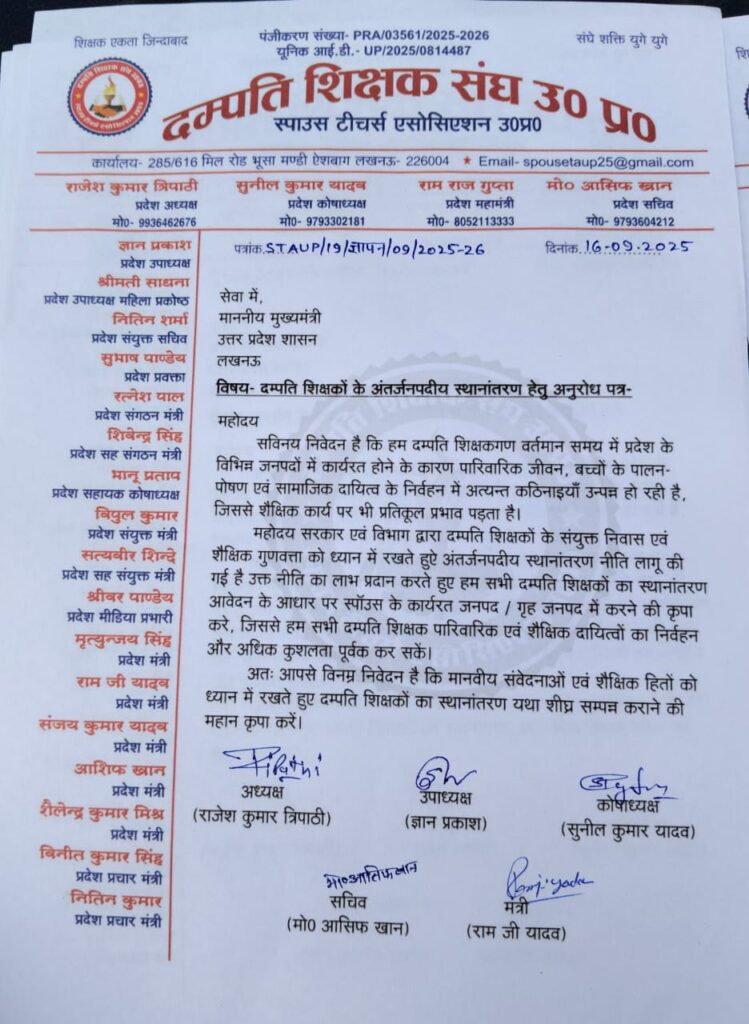 शिक्षक एकता जिन्दाबाद
पंजीकरण संख्या- PRA/03561/2025-2026
यूनिक आई.डी.- UP/2025/0814487
संघे शक्ति युगे युगे
दम्पति शिक्षक संघ उ0 प्र0
स्पाउस टीचर्स एसोसिएशन उ0प्र0
कार्यालय- 285/616 मिल रोड भूसा मण्डी ऐशबाग लखनऊ- 226004 ★ Email- spousetaup25@gmail.com
राजेश कुमार त्रिपाठी
प्रदेश अध्यक्ष
मो0- 9936462676
सुनील कुमार यादव
प्रदेश कोषाध्यक्ष
मो0- 9793302181
राम राज गुप्ता
प्रदेश महामंत्री
मो0- 8052113333
मो0 आसिफ खान
प्रदेश सचिव
मो0- 9793604212
ज्ञान प्रकाश
प्रदेश उपाध्यक्ष
श्रीमती साधना
प्रदेश उपाध्यक्ष महिला प्रकोष्ठ
नितिन शर्मा
प्रदेश संयुक्त सचिव
सुभाष पाण्डेय
प्रदेश प्रवक्ता
रत्नेश पाल
प्रदेश संगठन मंत्री
शिबेन्द्र सिंह
प्रदेश सह संगठन मंत्री
भानू प्रताप
प्रदेश सहायक कोषाध्यक्ष
बिपुल कुमार
प्रदेश संयुक्त मंत्री
सत्यवीर शिन्दे
प्रदेश सह संयुक्त मंत्री
श्रीवर पाण्डेय
प्रदेश मीडिया प्रभारी
मृत्युन्जय सिंह
प्रदेश मंत्री
राम जी यादव
प्रदेश मंत्री
संजय कुमार यादव
प्रदेश मंत्री
आशिफ खान
प्रदेश मंत्री
शैलेन्द्र कुमार मिश्र
प्रदेश मंत्री
विनीत कुमार सिंह
प्रदेश प्रचार मंत्री
नितिन कुमार
प्रदेश प्रचार मंत्री
पत्रांक. STAUP/19/ज्ञापन/09/2025-26
दिनांक. 16-09-2025
सेवा में,
माननीय मुख्यमंत्री
उत्तर प्रदेश शासन
लखनऊ
विषय- दम्पति शिक्षकों के अंतर्जनपदीय स्थानांतरण हेतु अनुरोध पत्र-
महोदय
सविनय निवेदन है कि हम दम्पति शिक्षकगण वर्तमान समय में प्रदेश के
विभिन्न जनपदों में कार्यरत होने के कारण पारिवारिक जीवन, बच्चों के पालन-
पोषण एवं सामाजिक दायित्व के निर्वहन में अत्यन्त कठिनाइयाँ उत्पन्न हो रही है,
जिससे शैक्षिक कार्य पर भी प्रतिकूल प्रभाव पड़ता है।
महोदय सरकार एवं विभाग द्वारा दम्पति शिक्षकों के संयुक्त निवास एवं
शैक्षिक गुणवत्ता को ध्यान में रखते हुऐ अंतर्जनपदीय स्थानांतरण नीति लागू की
गई है उक्त नीति का लाभ प्रदान करते हुए हम सभी दम्पति शिक्षकों का स्थानांतरण
आवेदन के आधार पर स्पॉउस के कार्यरत जनपद / गृह जनपद में करने की कृपा
करे, जिससे हम सभी दम्पति शिक्षक पारिवारिक एवं शैक्षिक दायित्वों का निर्वहन
और अधिक कुशलता पूर्वक कर सकें।
अतः आपसे विनम्र निवेदन है कि मानवीय संवेदनाओं एवं शैक्षिक हितों को
ध्यान में रखते हुए दम्पति शिक्षकों का स्थानांतरण यथा शीघ्र सम्पन्न कराने की
महान कृपा करें।
अध्यक्ष
(राजेश कुमार त्रिपाठी)
उपाध्यक्ष
(ज्ञान प्रकाश)
कोषाध्यक्ष
(सुनील कुमार यादव)
सचिव
(मो0 आसिफ खान)
मंत्री
(राम जी यादव)